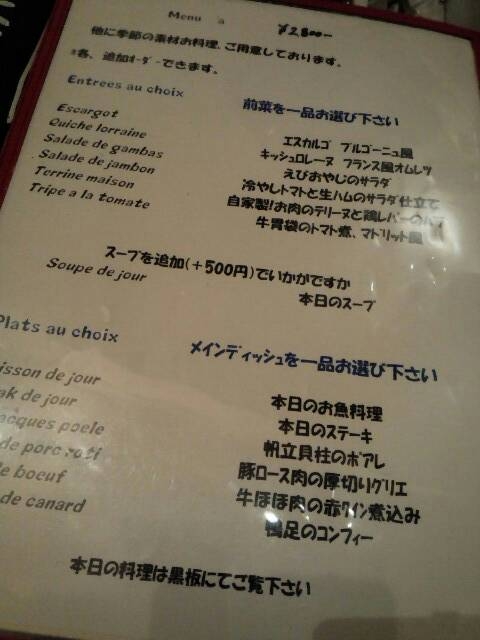 Menu a ¥2,800-
他に季節の素材お料理、ご用意しております。
*各、追加ｵｰﾀﾞｰできます。
Entrees au choix 前菜を一品お選び下さい
Escargot エスカルゴ ブルゴーニュ風
Quiche lorraine キッシュロレーヌ フランス風オムレツ
Salade de gambas えびおやじのサラダ
Salade de jambon 冷やしトマトと生ハムのサラダ仕立て
Terrine maison 自家製!お肉のテリーヌと鶏レバーの
Tripe a la tomate 牛胃袋のトマト煮、マドリット風
スープを追加(＋500円)でいかがですか
Soupe de jour 本日のスープ
Plats au choix メインディッシュを一品お選び下さい
isson de jour 本日のお魚料理
ak de jour 本日のステーキ
acques poele 帆立貝柱のポアレ
de porc roti 豚ロース肉の厚切りグリエ
de boeuf 牛ほほ肉の赤ﾜｲﾝ煮込み
de canard 鴨足のコンフィー
本日の料理は黒板にてご覧下さい